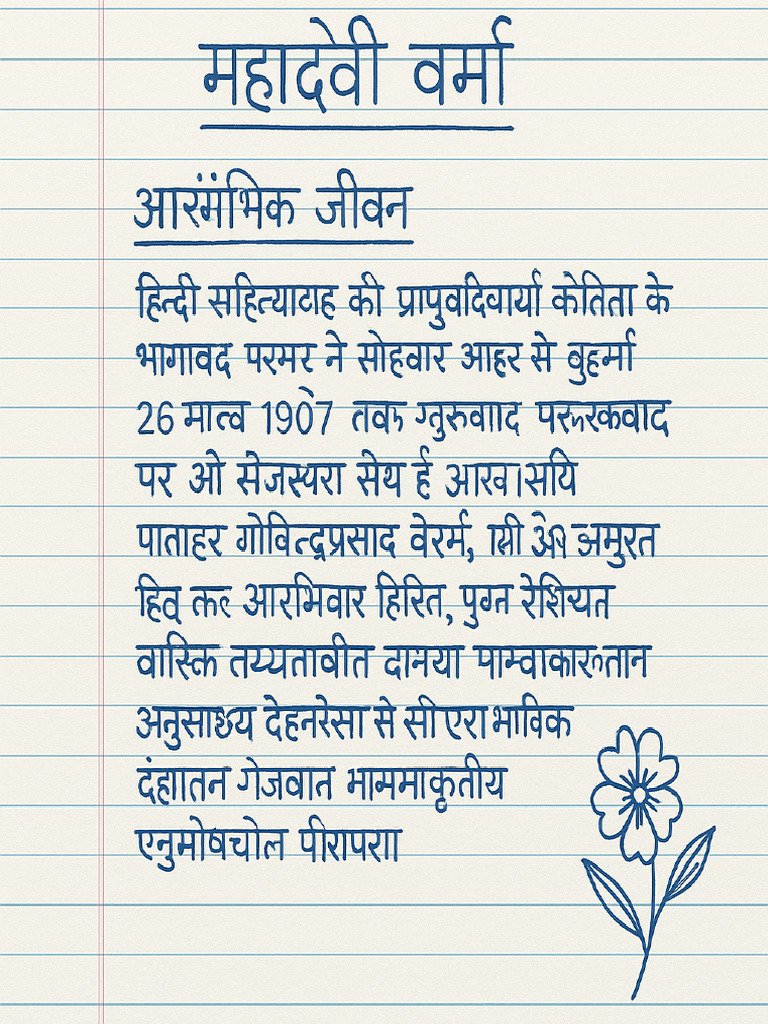 महादेवी वर्मा
आरंमंभिक जीवन
हिन्दी सहित्याटाह की प्रापुवदिवार्या केतिता के
भागावद परमर ने सोहवार आहर से वुहर्मा
26 मात्व 1907 तक परूरकवाद
पर ओ सेजस्यरा सेथ र्ह
पाताहर गोविन्द्रप्रसाद वेरर्म, अमुरत
आरभिवार हिरित, पुग्न रेशियत
वास्कि तय्यतावीत दामया
अनुसाथ्य देहनरेसा से सी एरा भाविक
दंहाातन गेजवात भाममाकृतीय
एनुमोषचोल पीरापराा